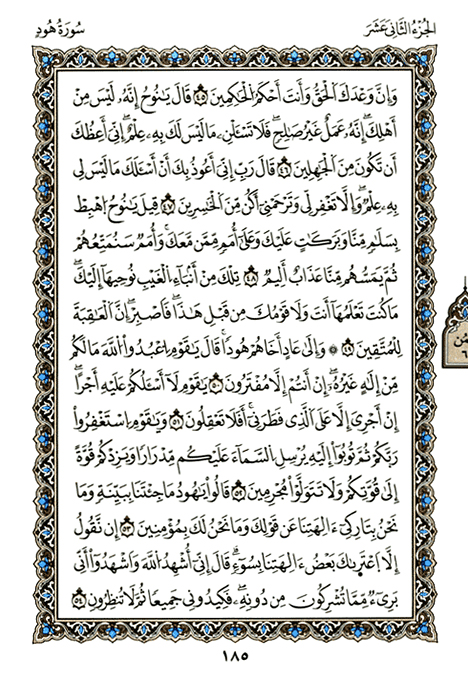 الجُزْءُ الثَّانِى عَشَرَ
سُورَةُ هُودٍ
وَإِنَّ وَعْدَكَ الْحَقُّ وَأَنتَ أَحْكَمُ الْحَٰكِمِينَ ٤٥ قَالَ يَٰنُوحُ إِنَّهُۥ لَيْسَ مِنْ
أَهْلِكَ إِنَّهُۥ عَمَلٌ غَيْرُ صَٰلِحٍ فَلَا تَسْـَٔلَنِّ مَا لَيْسَ لَكَ بِهِۦ عِلْمٌ إِنِّىَ أَعِظُكَ
أَن تَكُونَ مِنَ الْجَٰهِلِينَ ٤٦ قَالَ رَبِّ إِنِّىَ أَعُوذُ بِكَ أَنْ أَسْـَٔلَكَ مَا لَيْسَ لِى
بِهِۦ عِلْمٌ وَإِلَّا تَغْفِرْ لِى وَتَرْحَمْنِى أَكُن مِّنَ الْخَٰسِرِينَ ٤٧ قِيلَ يَٰنُوحُ اهْبِطْ
بِسَلَٰمٍ مِّنَّا وَبَرَكَٰتٍ عَلَيْكَ وَعَلَىٰٓ أُمَمٍ مِّمَّن مَّعَكَ وَأُمَمٌ سَنُمَتِّعُهُمْ
ثُمَّ يَمَسُّهُم مِّنَّا عَذَابٌ أَلِيمٌ ٤٨ تِلْكَ مِنْ أَنۢبَآءِ الْغَيْبِ نُوحِيهَآ إِلَيْكَ
مَا كُنتَ تَعْلَمُهَآ أَنتَ وَلَا قَوْمُكَ مِن قَبْلِ هَٰذَا فَاصْبِرْ إِنَّ الْعَٰقِبَةَ
لِلْمُتَّقِينَ ٤٩ وَإِلَىٰ عَادٍ أَخَاهُمْ هُودًا قَالَ يَٰقَوْمِ اعْبُدُوا اللَّهَ مَا لَكُم
مِّنْ إِلَٰهٍ غَيْرُهُۥ إِنْ أَنتُمْ إِلَّا مُفْتَرُونَ ٥٠ يَٰقَوْمِ لَآ أَسْـَٔلُكُمْ عَلَيْهِ أَجْرًا
إِنْ أَجْرِىَ إِلَّا عَلَى الَّذِى فَطَرَنِىَ أَفَلَا تَعْقِلُونَ ٥١ وَيَٰقَوْمِ اسْتَغْفِرُوا
رَبَّكُمْ ثُمَّ تُوبُوٓا إِلَيْهِ يُرْسِلِ السَّمَآءَ عَلَيْكُم مِّدْرَارًا وَيَزِدْكُمْ قُوَّةً
إِلَىٰ قُوَّتِكُمْ وَلَا تَتَوَلَّوْا مُجْرِمِينَ ٥٢ قَالُوا يَٰهُودُ مَا جِئْتَنَا بِبَيِّنَةٍ وَمَا
نَحْنُ بِتَارِكِىٓ ءَالِهَتِنَا عَن قَوْلِكَ وَمَا نَحْنُ لَكَ بِمُؤْمِنِينَ ٥٣ إِن نَّقُولُ
إِلَّا اعْتَرَىٰكَ بَعْضُ ءَالِهَتِنَا بِسُوٓءٍ قَالَ إِنِّىَ أُشْهِدُ اللَّهَ وَاشْهَدُوٓا أَنِّى
بَرِىٓءٌ مِّمَّا تُشْرِكُونَ مِن دُونِهِۦ فَكِيدُونِى جَمِيعًا ثُمَّ لَا تُنظِرُونِ ٥٤
١٨٥